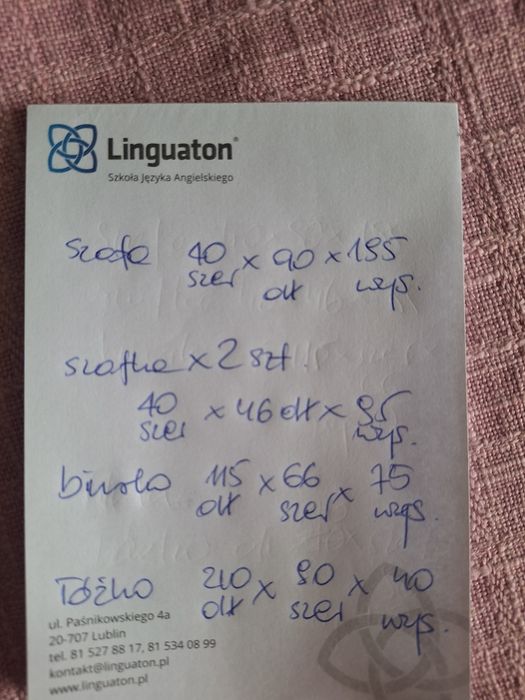 Linguaton®
Szkoła Języka Angielskiego
Szafa 40 x 90 x 195
szer dł wys.
szafka x 2 szt.
40 x 46 dł x 95
szer wys.
biurko 115 x 66 x 75
dł szer wys.
Łóżko 210 x 90 x 40
dł szer wys.
ul. Paśnikowskiego 4a
20-707 Lublin
tel. 81 527 88 17, 81 534 08 99
kontakt@linguaton.pl
www.linguaton.pl